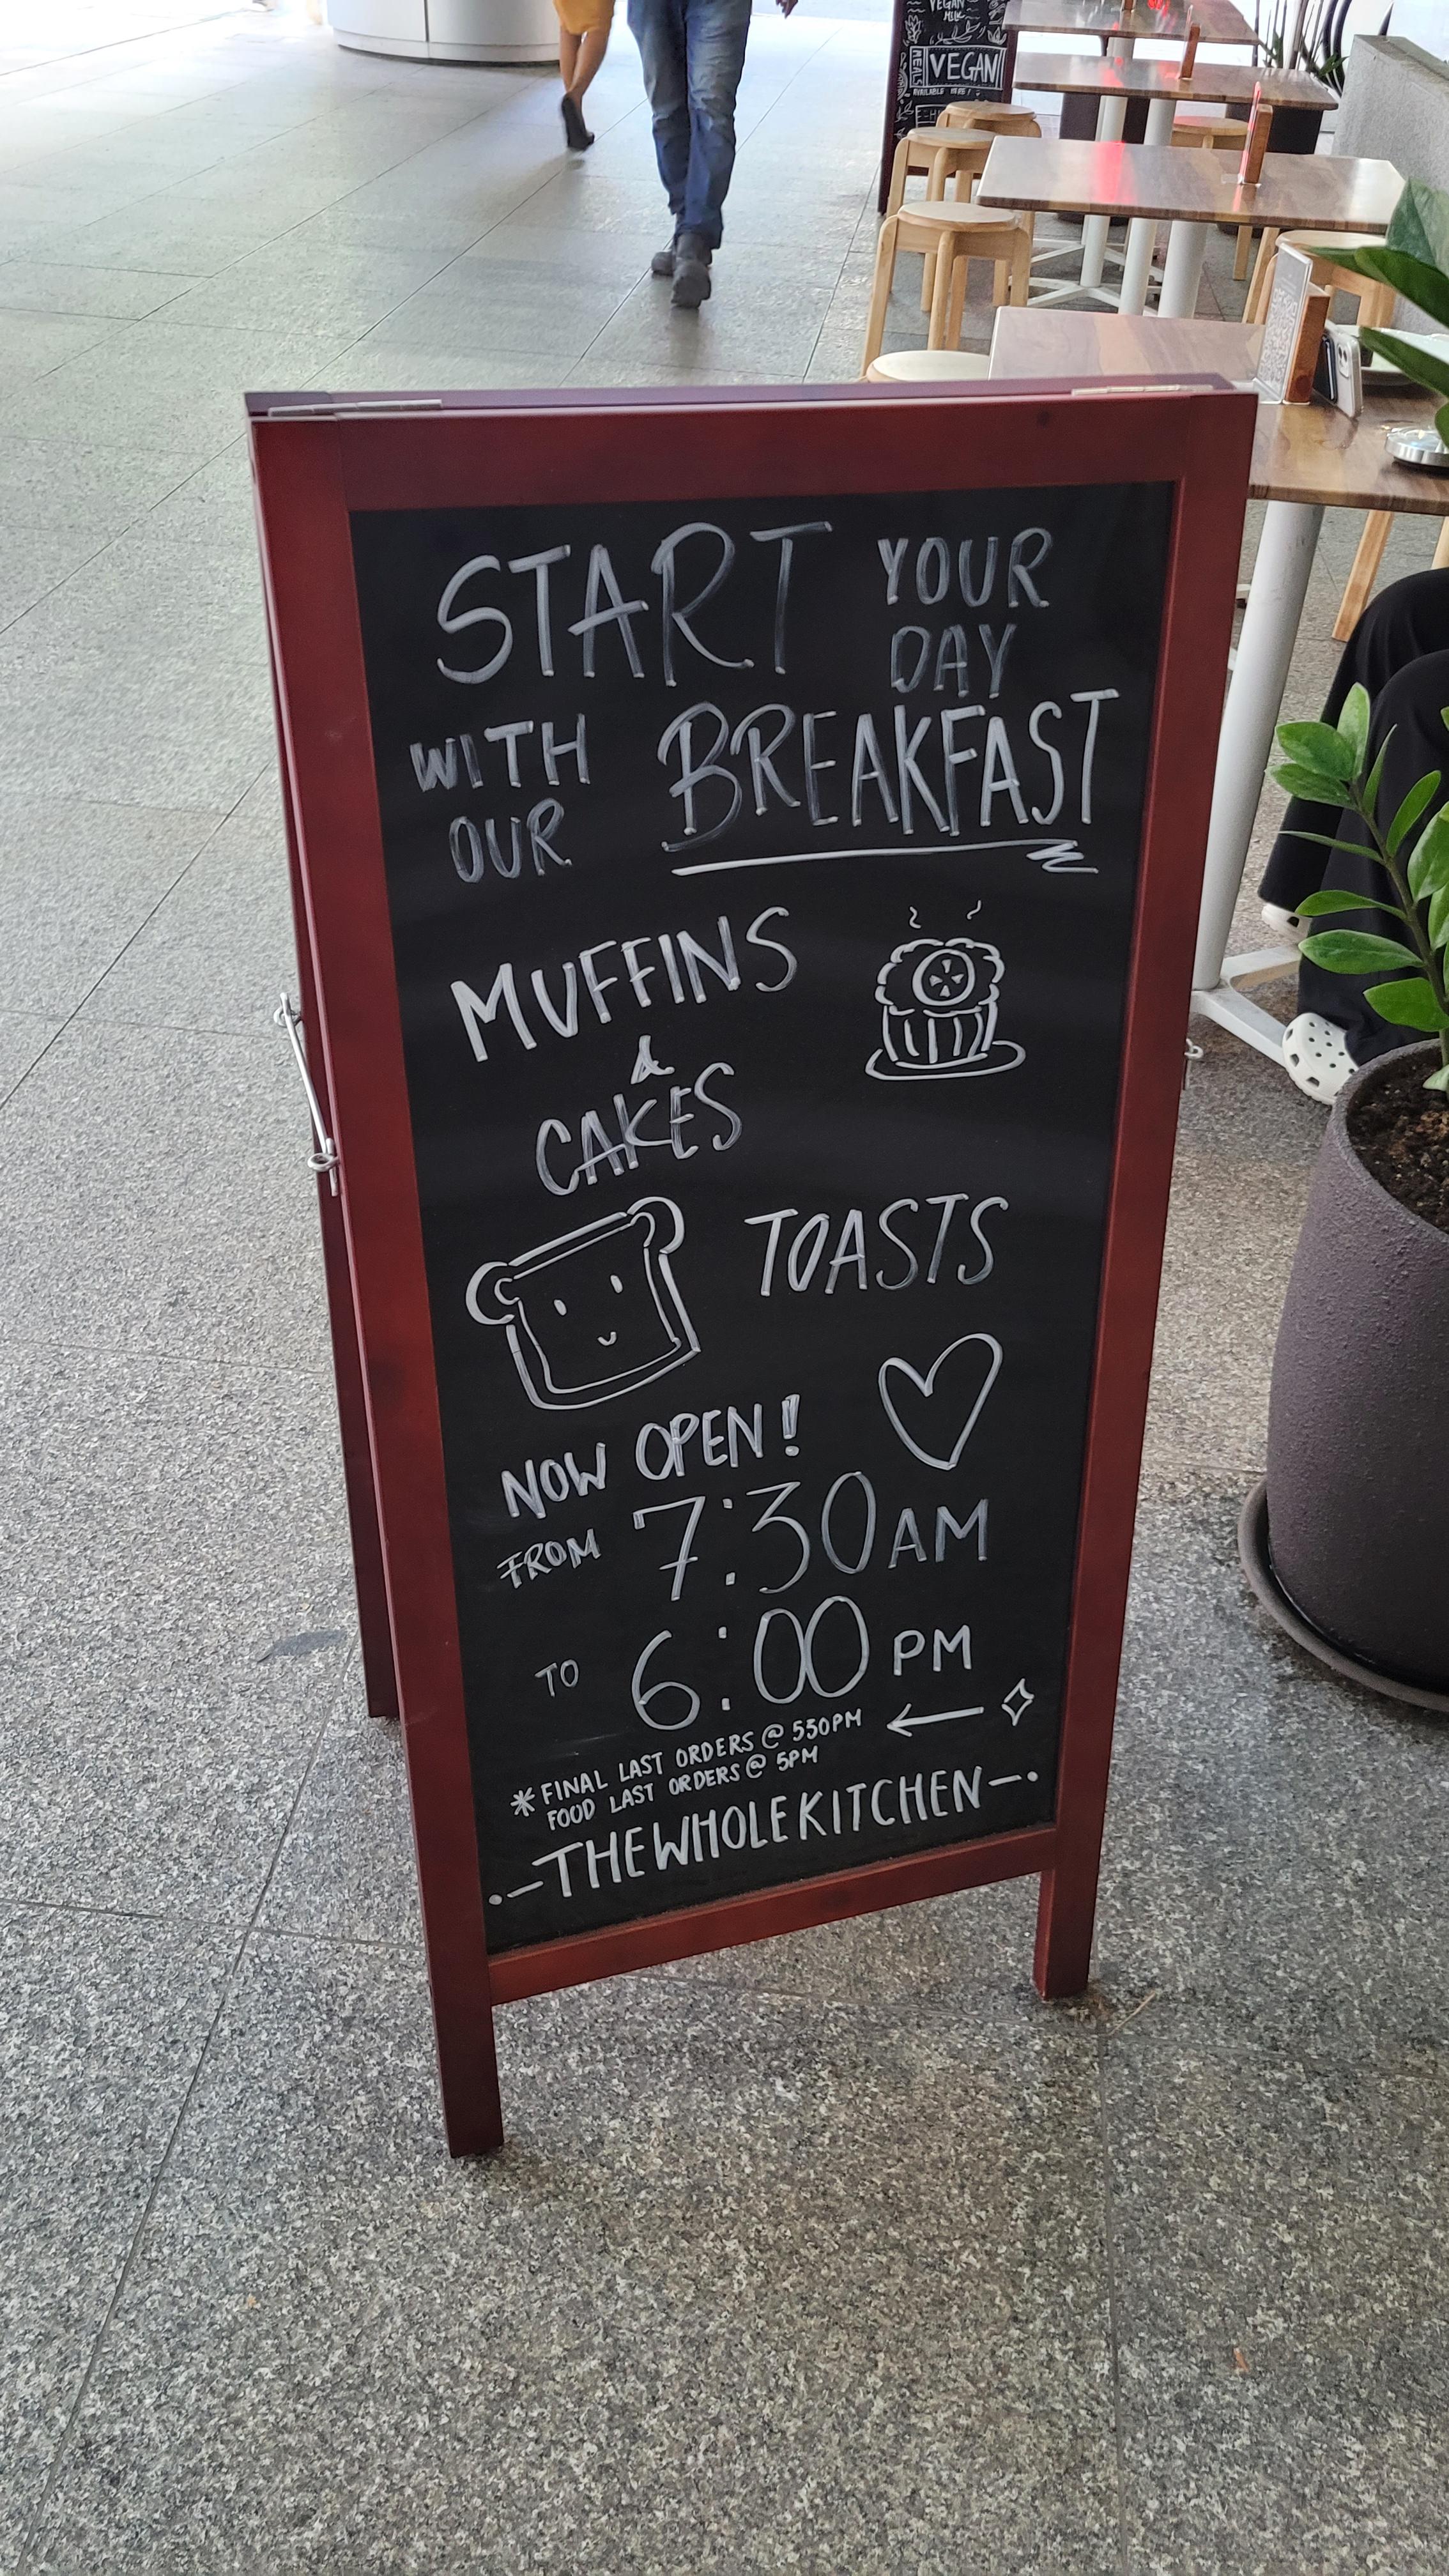 VEGAN
MILK
MEALS
VEGAN
AVAILABLE HERE!
START YOUR
DAY
WITH
OUR BREAKFAST
MUFFINS
&
CAKES
TOASTS
NOW OPEN!
FROM 7:30 AM
TO 6:00 PM
*FINAL LAST ORDERS @ 530PM
FOOD LAST ORDERS @ 5PM
THEWHOLEKITCHEN